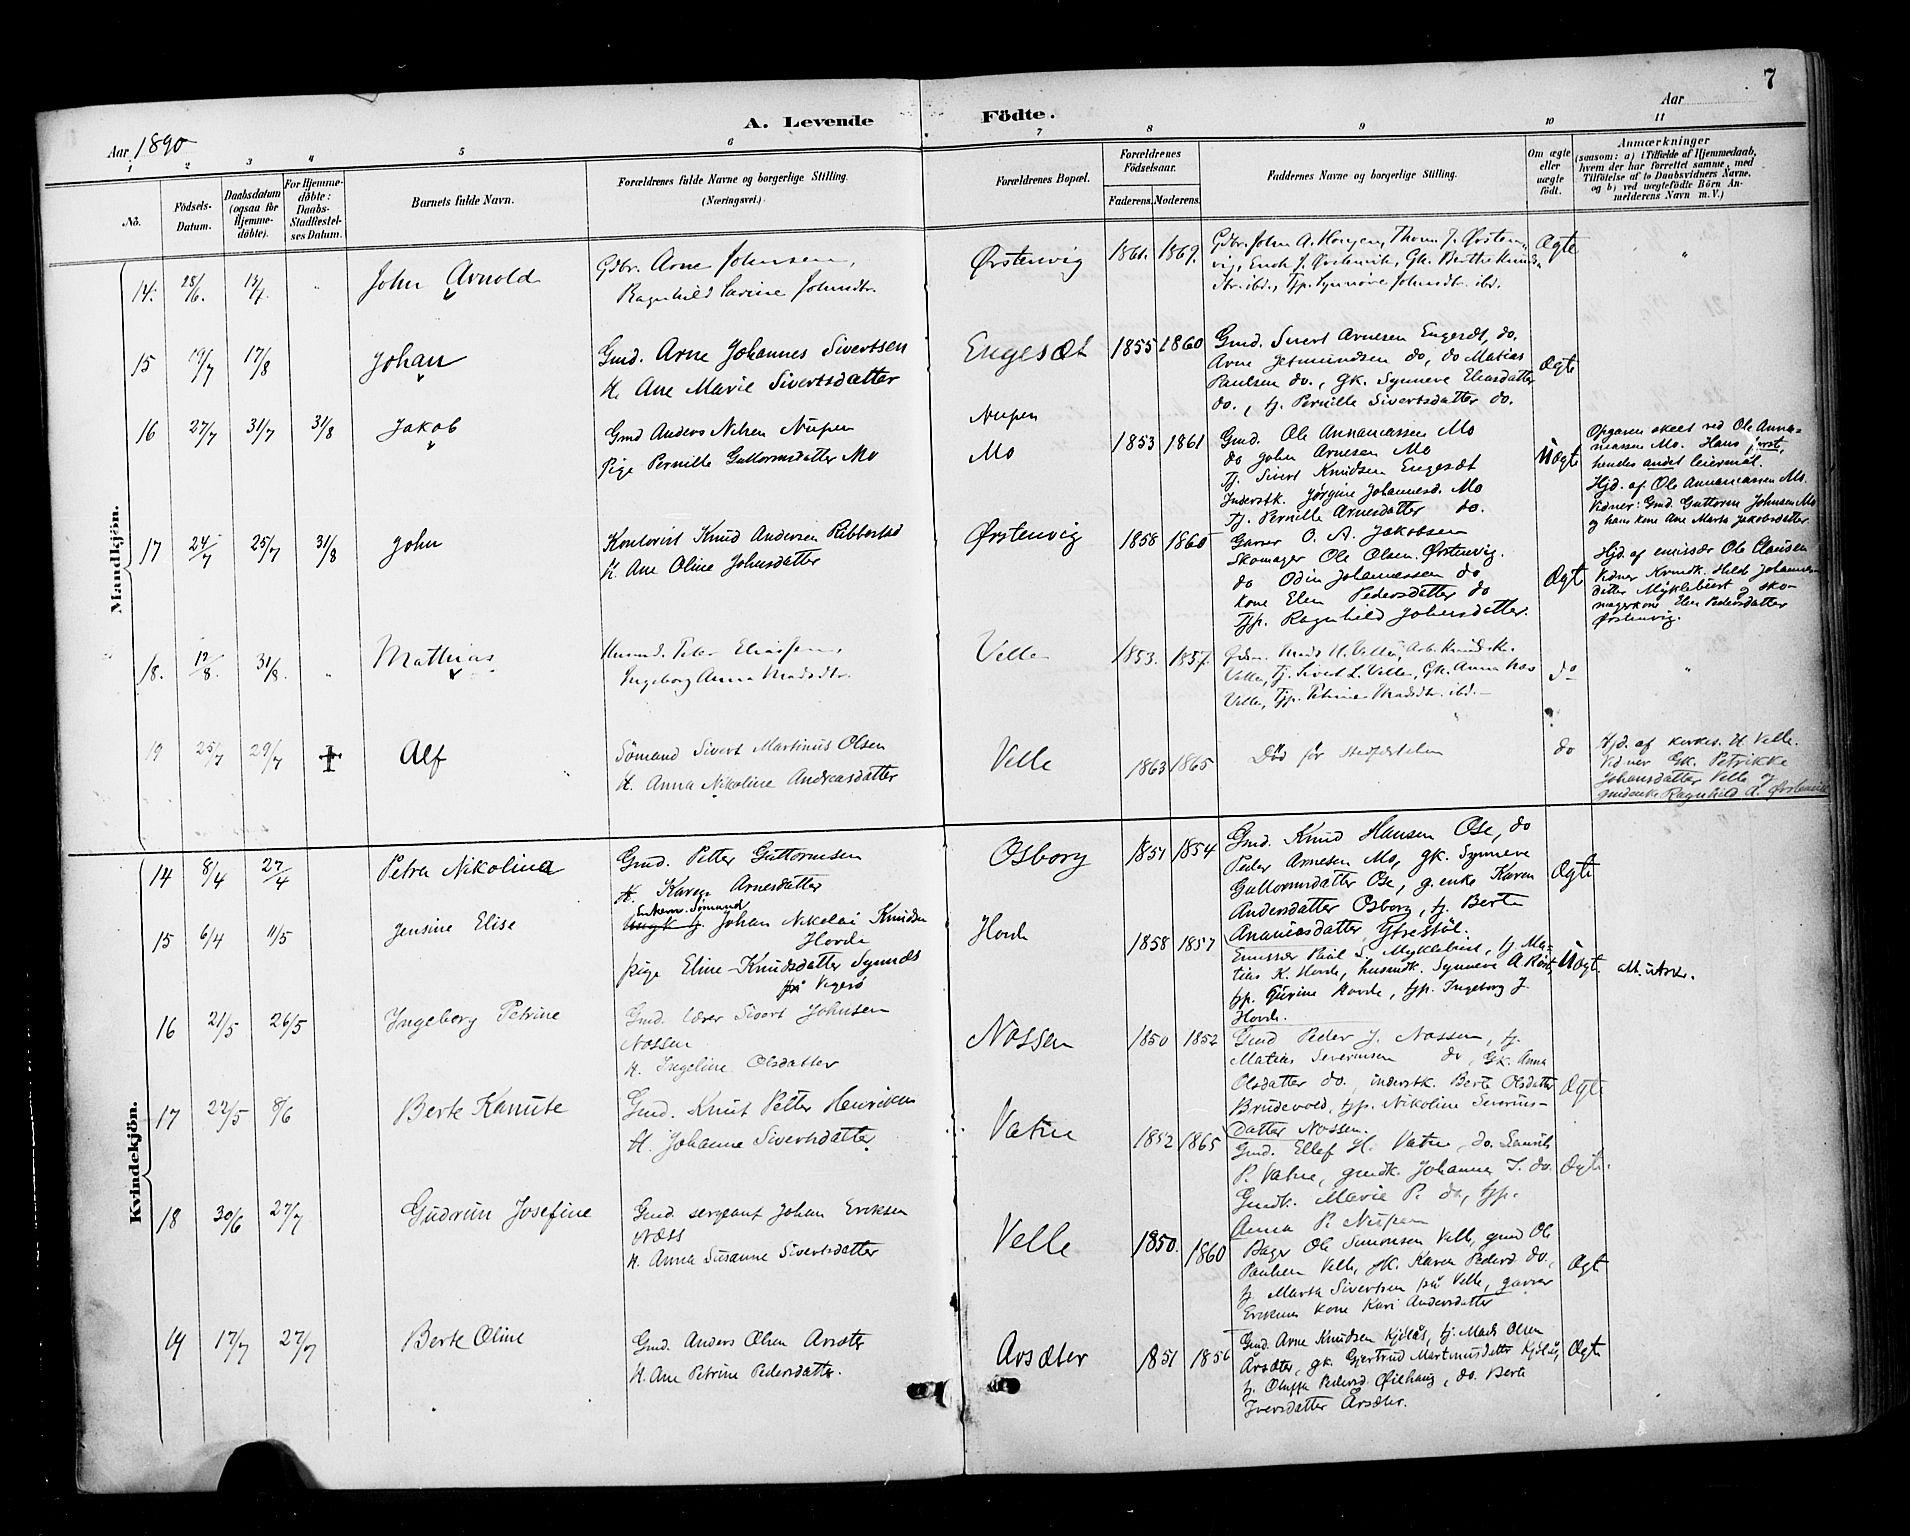 7
Aar 1890
A. Levende Födte.
Aar
1 2 3 4 5 6 7 8 9 10 11
No.
Födsels-Datum.
Daabsdatum (ogsaa for Hjemmedöbte).
For Hjemmedöbte: Daabs-Stadfæstelses Datum.
Barnets fulde Navn.
Forældrenes fulde Navne og borgerlige Stilling. (Næringsvei.)
Forældrenes Bopæl.
Forældrenes Födselsaar.
Faderens. Moderens.
Faddernes Navne og borgerlige Stilling.
Om ægte eller uægte födt.
Anmærkninger
(saasom: a) i Tilfælde af Hjemmedaab, hvem der har forrettet samme, med Tilföielse af to Daabsvidners Navne, og b) ved uægtefödte Börn Anmelderens Navn m. V.)
Mandkjön.
14. 28/6. 13/7. " John Arnold
Gdbr. Arne Johnsen,
Ragnhild Sarine Johnsdtr.
Ørstenvig 1861. 1869.
Gdbr. John A. Hovgen, Thom. J. Ørsten-
vig, Enok J. Ørstenvik, Gk. Berthe Knuds-
dtr. ibd., Tjp. Synnøve Johnsdtr. ibd.
Ægte "
15 19/7 17/8 Johan
Gmd. Arne Johannes Sivertsen
H. Ane Marie Sivertsdatter
Engesæt 1855 1860
Gmd. Sivert Arnesen Engesæt, do.
Arne Jetmundsen do, do Matias
Paulsen do., gk. Synneve Eliasdatter
do., tj. Pernille Sivertsdatter do.
Ægte
16 27/7 31/7 31/8 Jakob
Gmd Anders Nilsen Nupen
Pige Pernille Guttormsdatter Mo
Nupen
Mo 1853 1861
Gmd. Ole Annaniassen Mo
do John Arnesen Mo
Tj. Sivert Knudsen Engesæt
Inderstk. Jørgine Johannesd. Mo
Tj. Pernille Arnesdatter do.
Uægte
Opgaven skeet ved Ole Anna-
niassen Mo. Hans første,
hendes andet leiermål.
Hjd. af Ole Annaniassen Mo.
Vidner: Gmd. Guttorm Johnsen Mo
og hans kone Ane Marta Jakobsdatter
17 24/7 25/7 31/8 John
Knud Andersen Ribbestad
H. Ane Oline Johnsdatter
Ørstenvig 1858 1860
Garver O. A. Jakobsen
Skomager Ole Olsen Ørstenvig.
do Odin Johannessen do
Kone Elen Pedersdatter do
Tjp. Ragnhild Johnsdatter.
Ægt
Hjd. af emissær Ole Clausen
Vidner Kvindk. Hilda Johannes-
datter Myklebust og sko-
magerkone Elen Pedersdatter
Ørstenvig.
18. 12/8. 31/8. " Mathias
Husmd. Peter Eliassen,
Ingeborg Anna Madsdtr.
Velle 1853. 1857.
Velle, Tj. Sivert L. Velle, Gk. Anna
Velle, Tjp. Petrine Madsdtr. ibd.
do "
19 25/7 29/7 Alf
Sømand Sivert Martinus Olsen
H. Anna Nikoline Andreasdatter
Velle 1863 1865
Død før Stadfæstelsen
do
Hjd. af kirkes. H. Velle.
Vidner Gk. Petrikke
Johansdatter Velle og
Ragnhild A. Ørstenvik
Kvindekjön.
14 8/4 27/4 Petra Nikolina
Gmd. Petter Guttormsen
H. Karen Arnesdatter
Osborg 1851 1854
Gmd. Knud Hansen Ose, do
Peder Arnesen Mo, gk. Synneve
Guttormsdatter Ose, g. enke Karen
Andersdatter Osborg, tj. Berte
Ananiasdatter Ytrestøl.
Ægte
15 6/4 11/5 Jensine Elise
Enkem. Sømand
Johan Nikolai Knudsen
Hovde
pige Eline Knudsdatter Synnes
på Vegsø
Hovde 1858 1857
Emissær Paul S. Myklebust, tj. Ma-
tias K. Hovde, husmdk. Synneve A
tjp. Gurine Hovde, tjp. Ingeborg J.
Hovde.
Uægt.
16 21/5 26/5 Ingeborg Petrine
Gmd. lærer Sivert Johnsen
Nossen
H. Ingeline Olsdatter
Nossen 1850 1852
Gmd Peder J. Nossen, tj.
Matias Severinsen do, Gk. Anna
Olsdatter do., inderstk. Berte Olsdatter
Brudevold, tjp. Nikoline Severins-
datter Nossen.
Ægte
17 22/5 8/6 Berte Kanute
Gmd. Knut Petter Henriksen
H. Johanne Sivertsdatter
Vatne 1852 1865
Gmd. Ellef H. Vatne, do. Laurits
P. Vatne, gmdk. Johanna I. do.
Gmdk. Marie P. do, tjp.
Anna P. Nupen
Ægte.
18 30/6 27/7 Gudrun Josefine
Gmd. sergeant Johan Eriksen
Næss
H. Anna Susanne Sivertsdatter
Velle 1850. 1860
Bager Ole Simonsen Velle, gmd Ole
Paulsen Velle, gk. Karen Pedersd do.,
tj. Marta Sivertsen på Velle, garver
Eriksens kone Kari Andersdatter
Ægt
19 17/7 27/7 Berte Oline
Gmd. Anders Olsen Årsæter
H. Ane Petrine Pedersdatter.
Årsæter 1851 1856
Gmd. Arne Knudsen Kjølås, tj. Mads Olsen
Årsæter, gk. Gjertrud Martinusdatter Kjølås,
tj. Oluffa Pedersd. Øiehaug, do. Berte
Iversdatter Årsæter.
Ægte